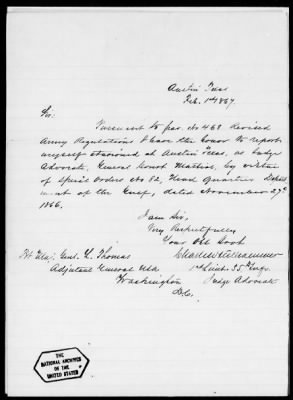 Austin Texas
Feb. 1st 1867.
Sir.
Pursuant to par. No 468 Revised
Army Regulations I have the honor to report
myself stationed at Austin Texas, as Judge
Advocate, General Court Martial, by virtue
of Special Orders No 82, Head Quarters
of the Gulf, dated November 27th
1866.
I am Sir,
Very Respectfully,
Your Obt Servt
1st Lieut. 35th Infy.
Judge Advocate
Bt Maj. Genl. L. Thomas
Adjutant General USA
Washington
D.C.
THE
NATIONAL ARCHIVES
OF THE
UNITED STATES